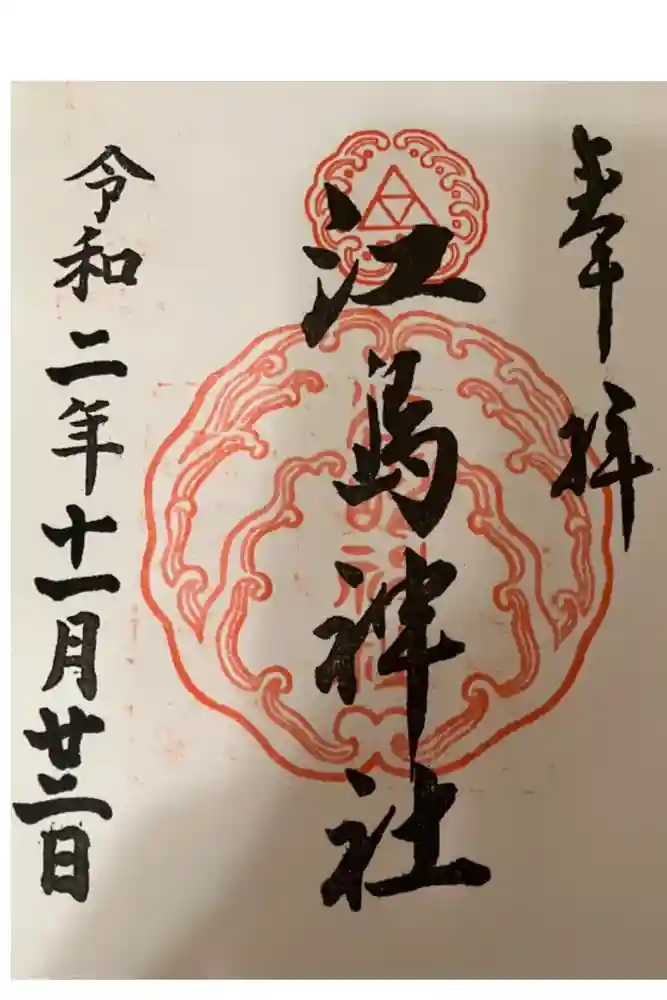 奉拝
江島神社
令和二年十一月廿二日